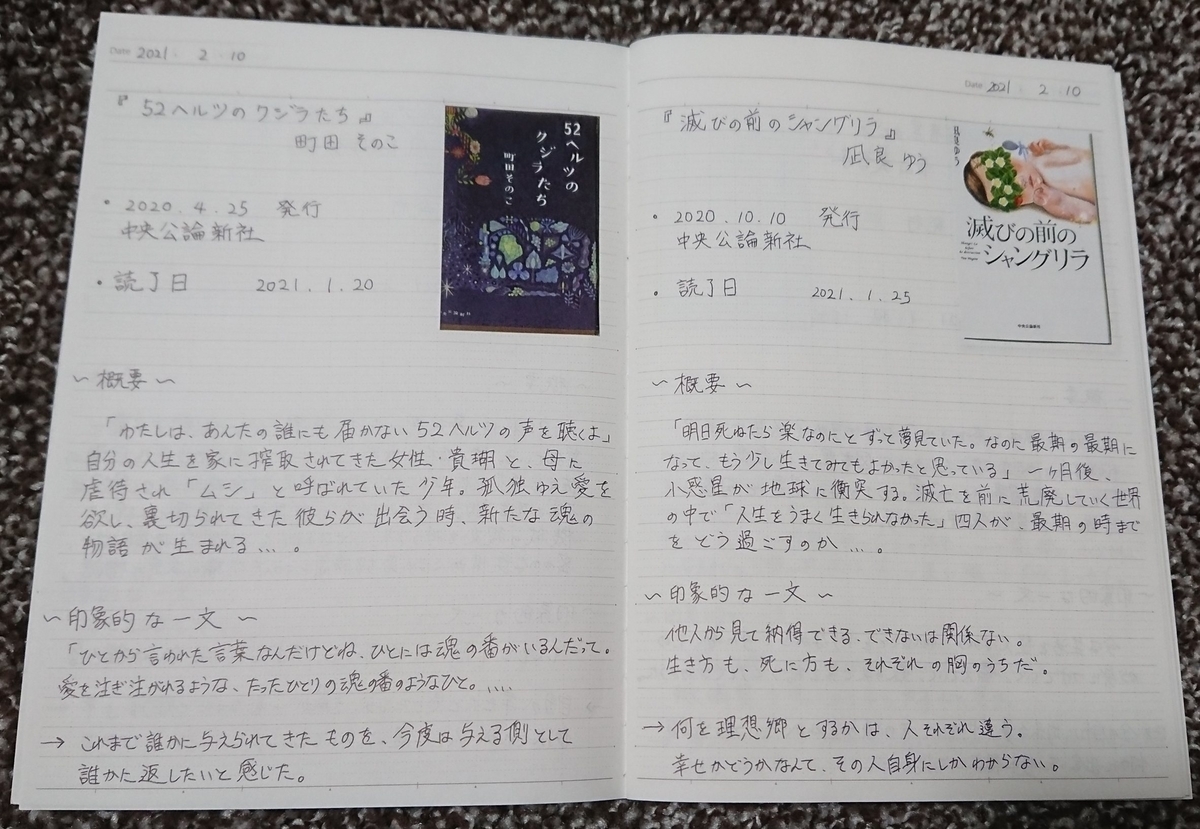 Date 2021 . 2 . 10
『52ヘルツのクジラたち』
町田 そのこ
52ヘルツの
クジラたち
町田そのこ
・2020.4.25 発行
中央公論新社
・読了日 2021.1.20
〜概要〜
「わたしは、あんたの誰にも届かない52ヘルツの声を聴くよ」
自分の人生を家に搾取されてきた女性・貴瑚と、母に
虐待され「ムシ」と呼ばれていた少年。孤独ゆえ愛を
欲し、裏切られてきた彼らが出会う時、新たな魂の
物語が生まれる…。
〜印象的な一文〜
「ひとから言われた言葉なんだけどね、ひとには魂の番がいるんだって。
愛を注ぎ注がれるような、たったひとりの魂の番のようなひと。….
→ これまで誰かに与えられてきたものを、今度は与える側として
誰かに返したいと感じた。
Date 2021 . 2 . 10
『滅びの前のシャングリラ』
凪良 ゆう
凪良ゆう
滅びの前の
シャングリラ
中央公論新社
・2020.10.10 発行
中央公論新社
・読了日 2021.1.25
〜概要〜
「明日死ねたら楽なのにとずっと夢見ていた。なのに最期の最期に
なって、もう少し生きてみてもよかったと思っている」一ヶ月後、
小惑星が地球に衝突する。滅亡を前に荒廃していく世界
の中で「人生をうまく生きられなかった」四人が、最期の時まで
をどう過ごすのか…。
〜印象的な一文〜
他人から見て納得できる、できないは関係ない。
生き方も、死に方も、それぞれの胸のうちだ。
→ 何を理想郷とするかは、人それぞれ違う。
幸せかどうかなんて、その人自身にしかわからない。